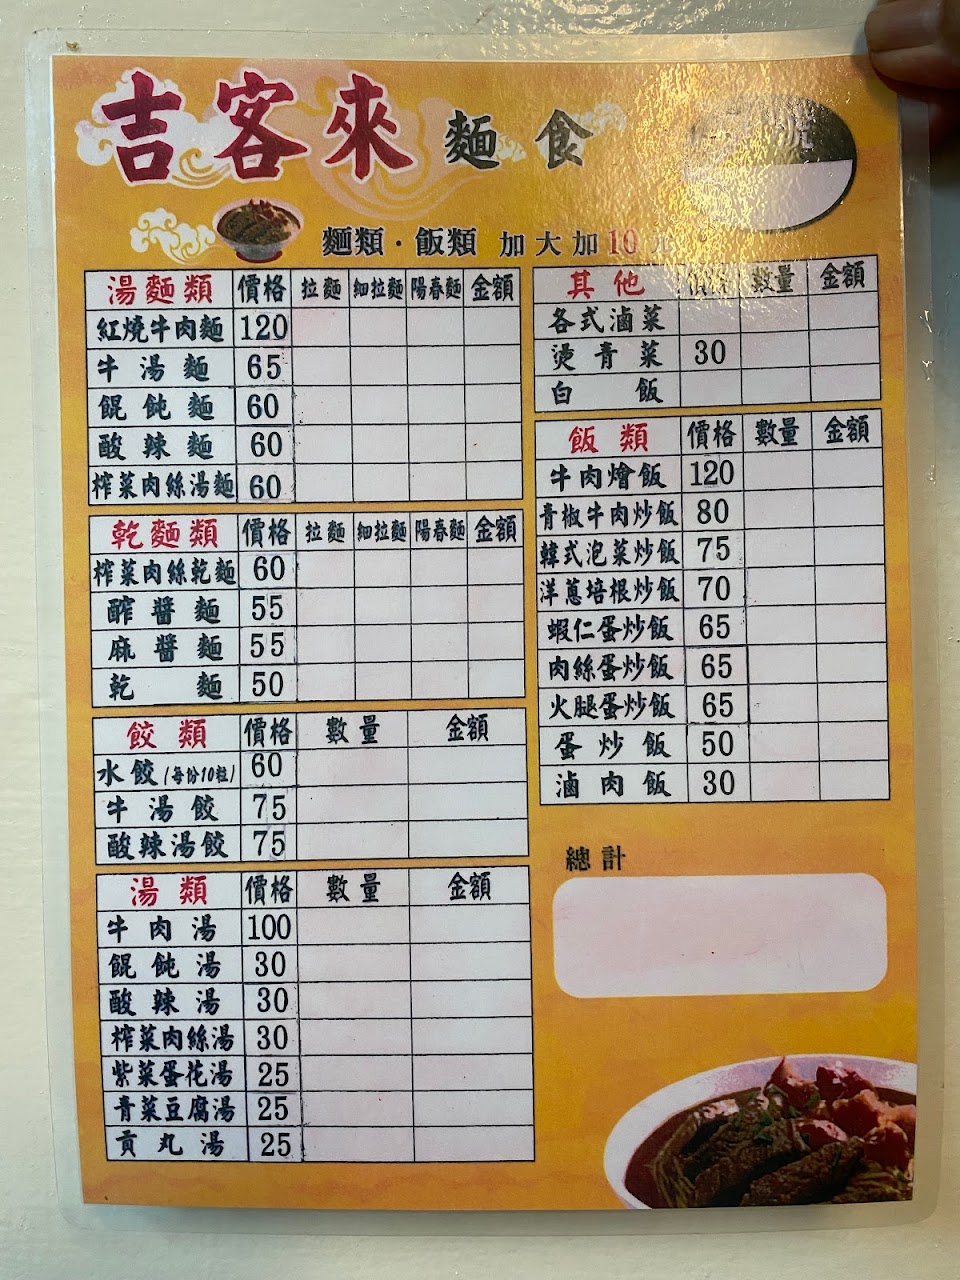 吉客來 麵食
麵類·飯類 加大加10元
湯麵類 價格 拉麵 細拉麵 陽春麵 金額
紅燒牛肉麵 120
牛湯麵 65
餛飩麵 60
酸辣麵 60
榨菜肉絲湯麵 60
乾麵類 價格 拉麵 細拉麵 陽春麵 金額
榨菜肉絲乾麵 60
醡醬麵 55
麻醬麵 55
乾麵 50
餃類 價格 數量 金額
水餃(每份10粒) 60
牛湯餃 75
酸辣湯餃 75
湯類 價格 數量 金額
牛肉湯 100
餛飩湯 30
酸辣湯 30
榨菜肉絲湯 30
紫菜蛋花湯 25
青菜豆腐湯 25
貢丸湯 25
其他 價格 數量 金額
各式滷菜
燙青菜 30
白飯
飯類 價格 數量 金額
牛肉燴飯 120
青椒牛肉炒飯 80
韓式泡菜炒飯 75
洋蔥培根炒飯 70
蝦仁蛋炒飯 65
肉絲蛋炒飯 65
火腿蛋炒飯 65
蛋炒飯 50
滷肉飯 30
總計